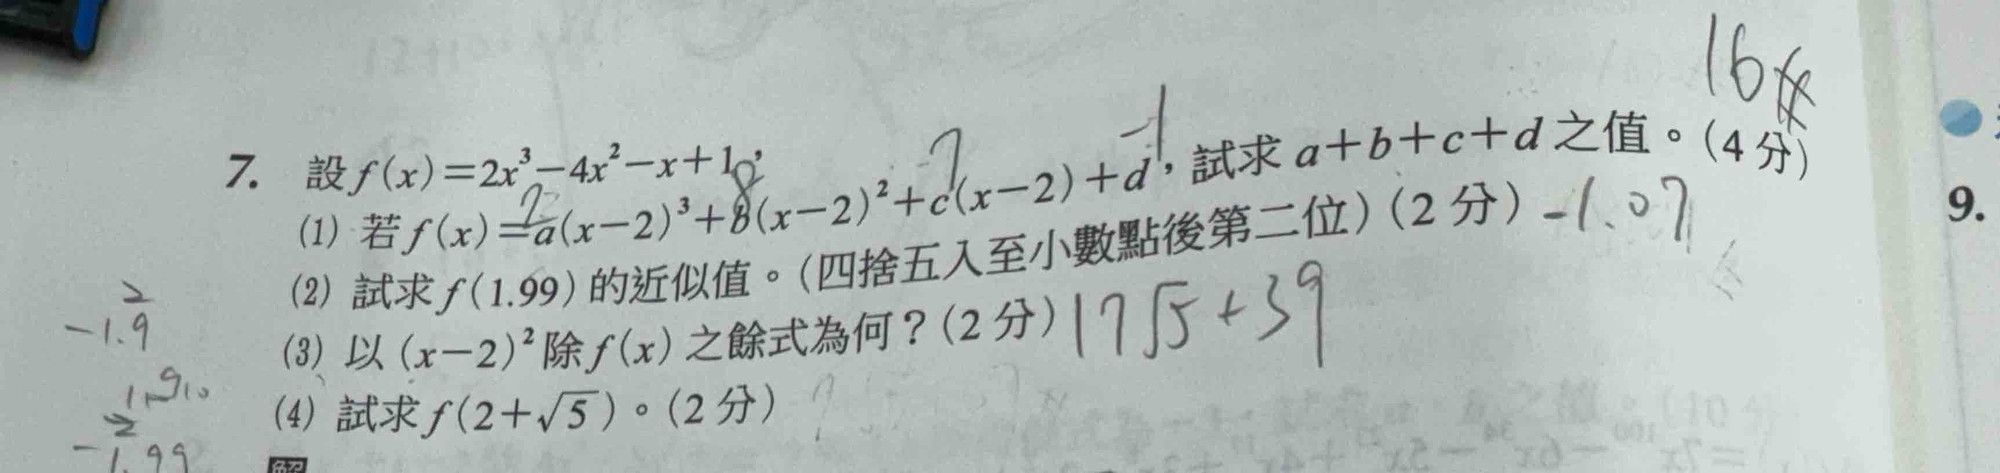 16
7. 設f(x)=2x³-4x²-x+1，
2 8 7 -1
(1) 若f(x)=a(x-2)³+b(x-2)²+c(x-2)+d，試求a+b+c+d之值。(4分)
(2) 試求f(1.99)的近似值。(四捨五入至小數點後第二位)(2分) -1.07
(3) 以(x-2)²除f(x)之餘式為何？(2分) 17√5+39
(4) 試求f(2+√5)。(2分)
解
2
-1.9
2
-1.99
9.